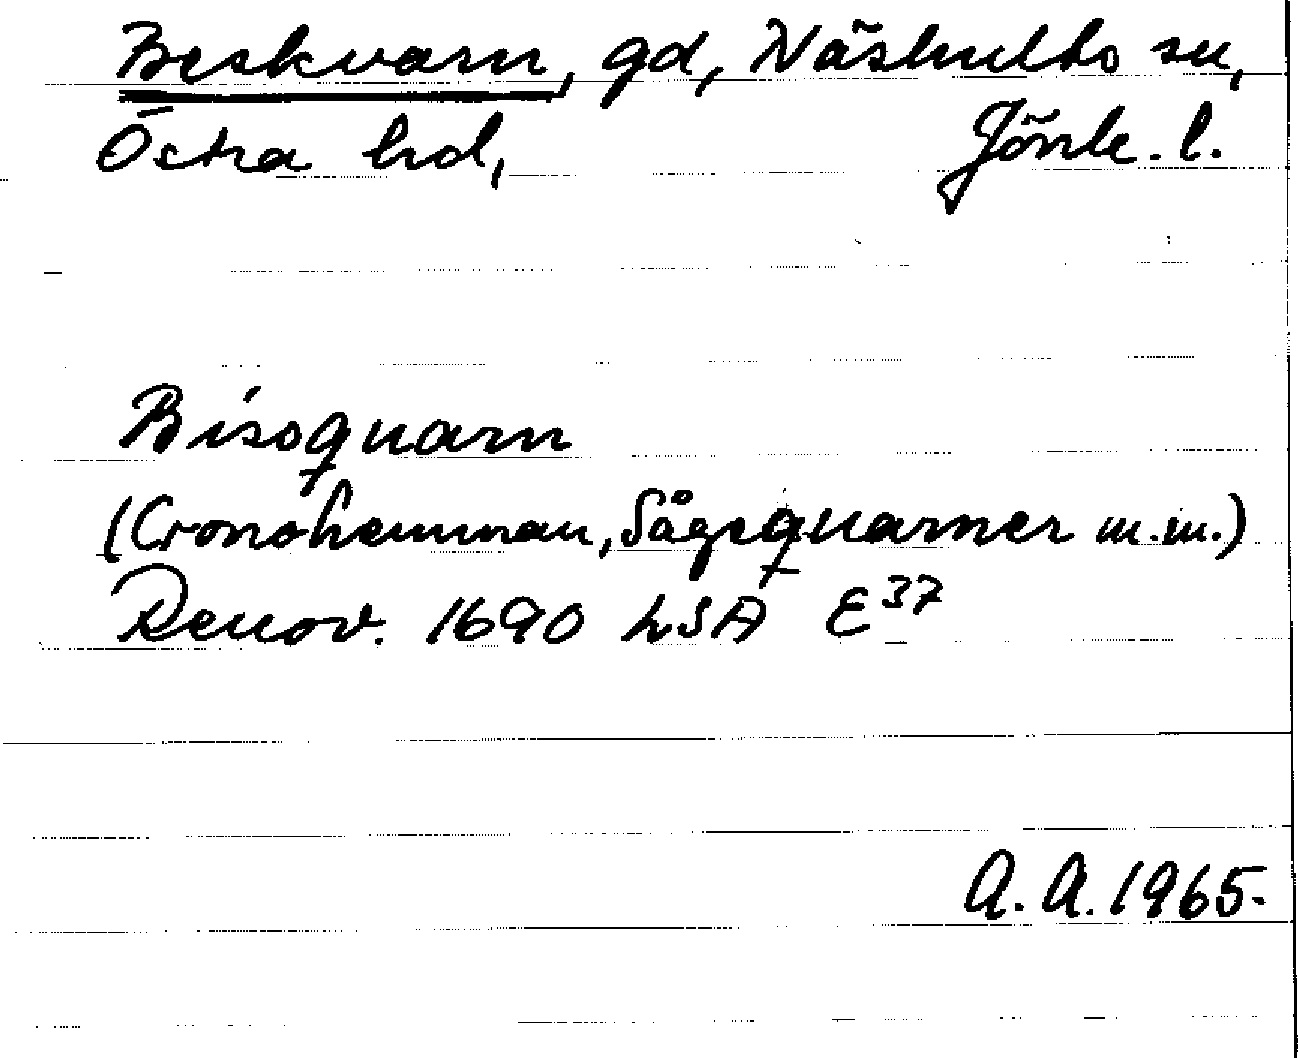 Beskvarn, gd, Näshults sn,
Östra hd, Jönk. l.
Bisoquarn
(Cronohemman, Sågequarner m.m.)
Renov. 1690 LSA E37
A. A. 1965.